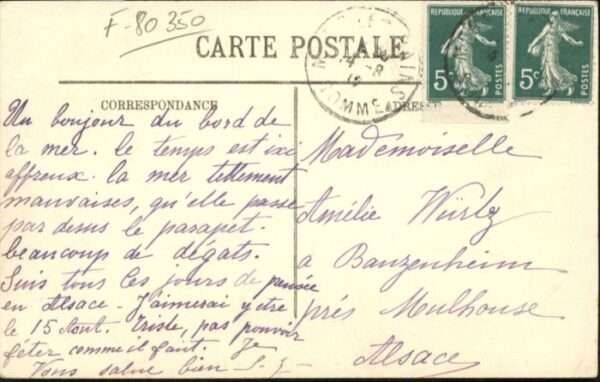 F-80350
CARTE POSTALE
REPUBLIQUE FRANÇAISE
5c
REPUBLIQUE FRANÇAISE
5c
SOMME
CORRESPONDANCE
ADRESSE
Un bonjour du bord de
la mer. le temps est ixi
affreux. la mer tellement
mauvaises, qu'elle passe
par desus le parapet.
beaucoup de dégats.
Suis tous les jours de pensée
en Alsace - J'aimerai y être
le 15 Aout. Triste, pas pouvoir
fêter comme il faut. Je
Vous salue bien
Mademoiselle
Amélie Würtz
a Banzenheim
prés Mulhouse
Alsace